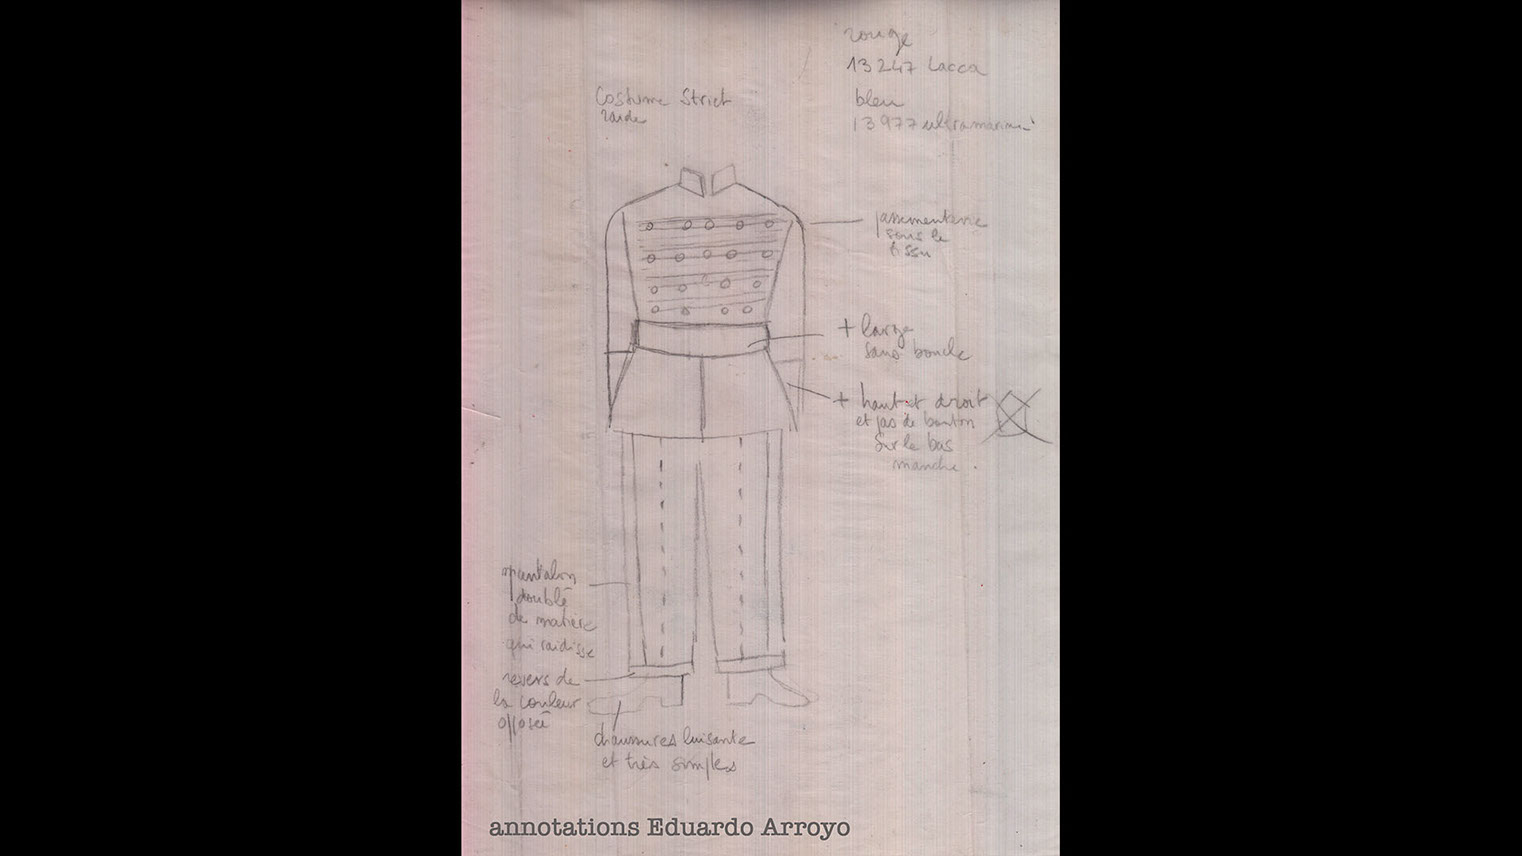 rouge
13247 Lacca
bleu
13977 ultramarine
Costume Strict
raide
passementerie
sous le
tissu
+ large
sans boucle
+ haut et droit
et pas de bouton
sur le bas
manche.
pantalon
doublé
de matière
qui raidisse
revers de
la couleur
opposée
chaussures luisante
et très simples
annotations Eduardo Arroyo